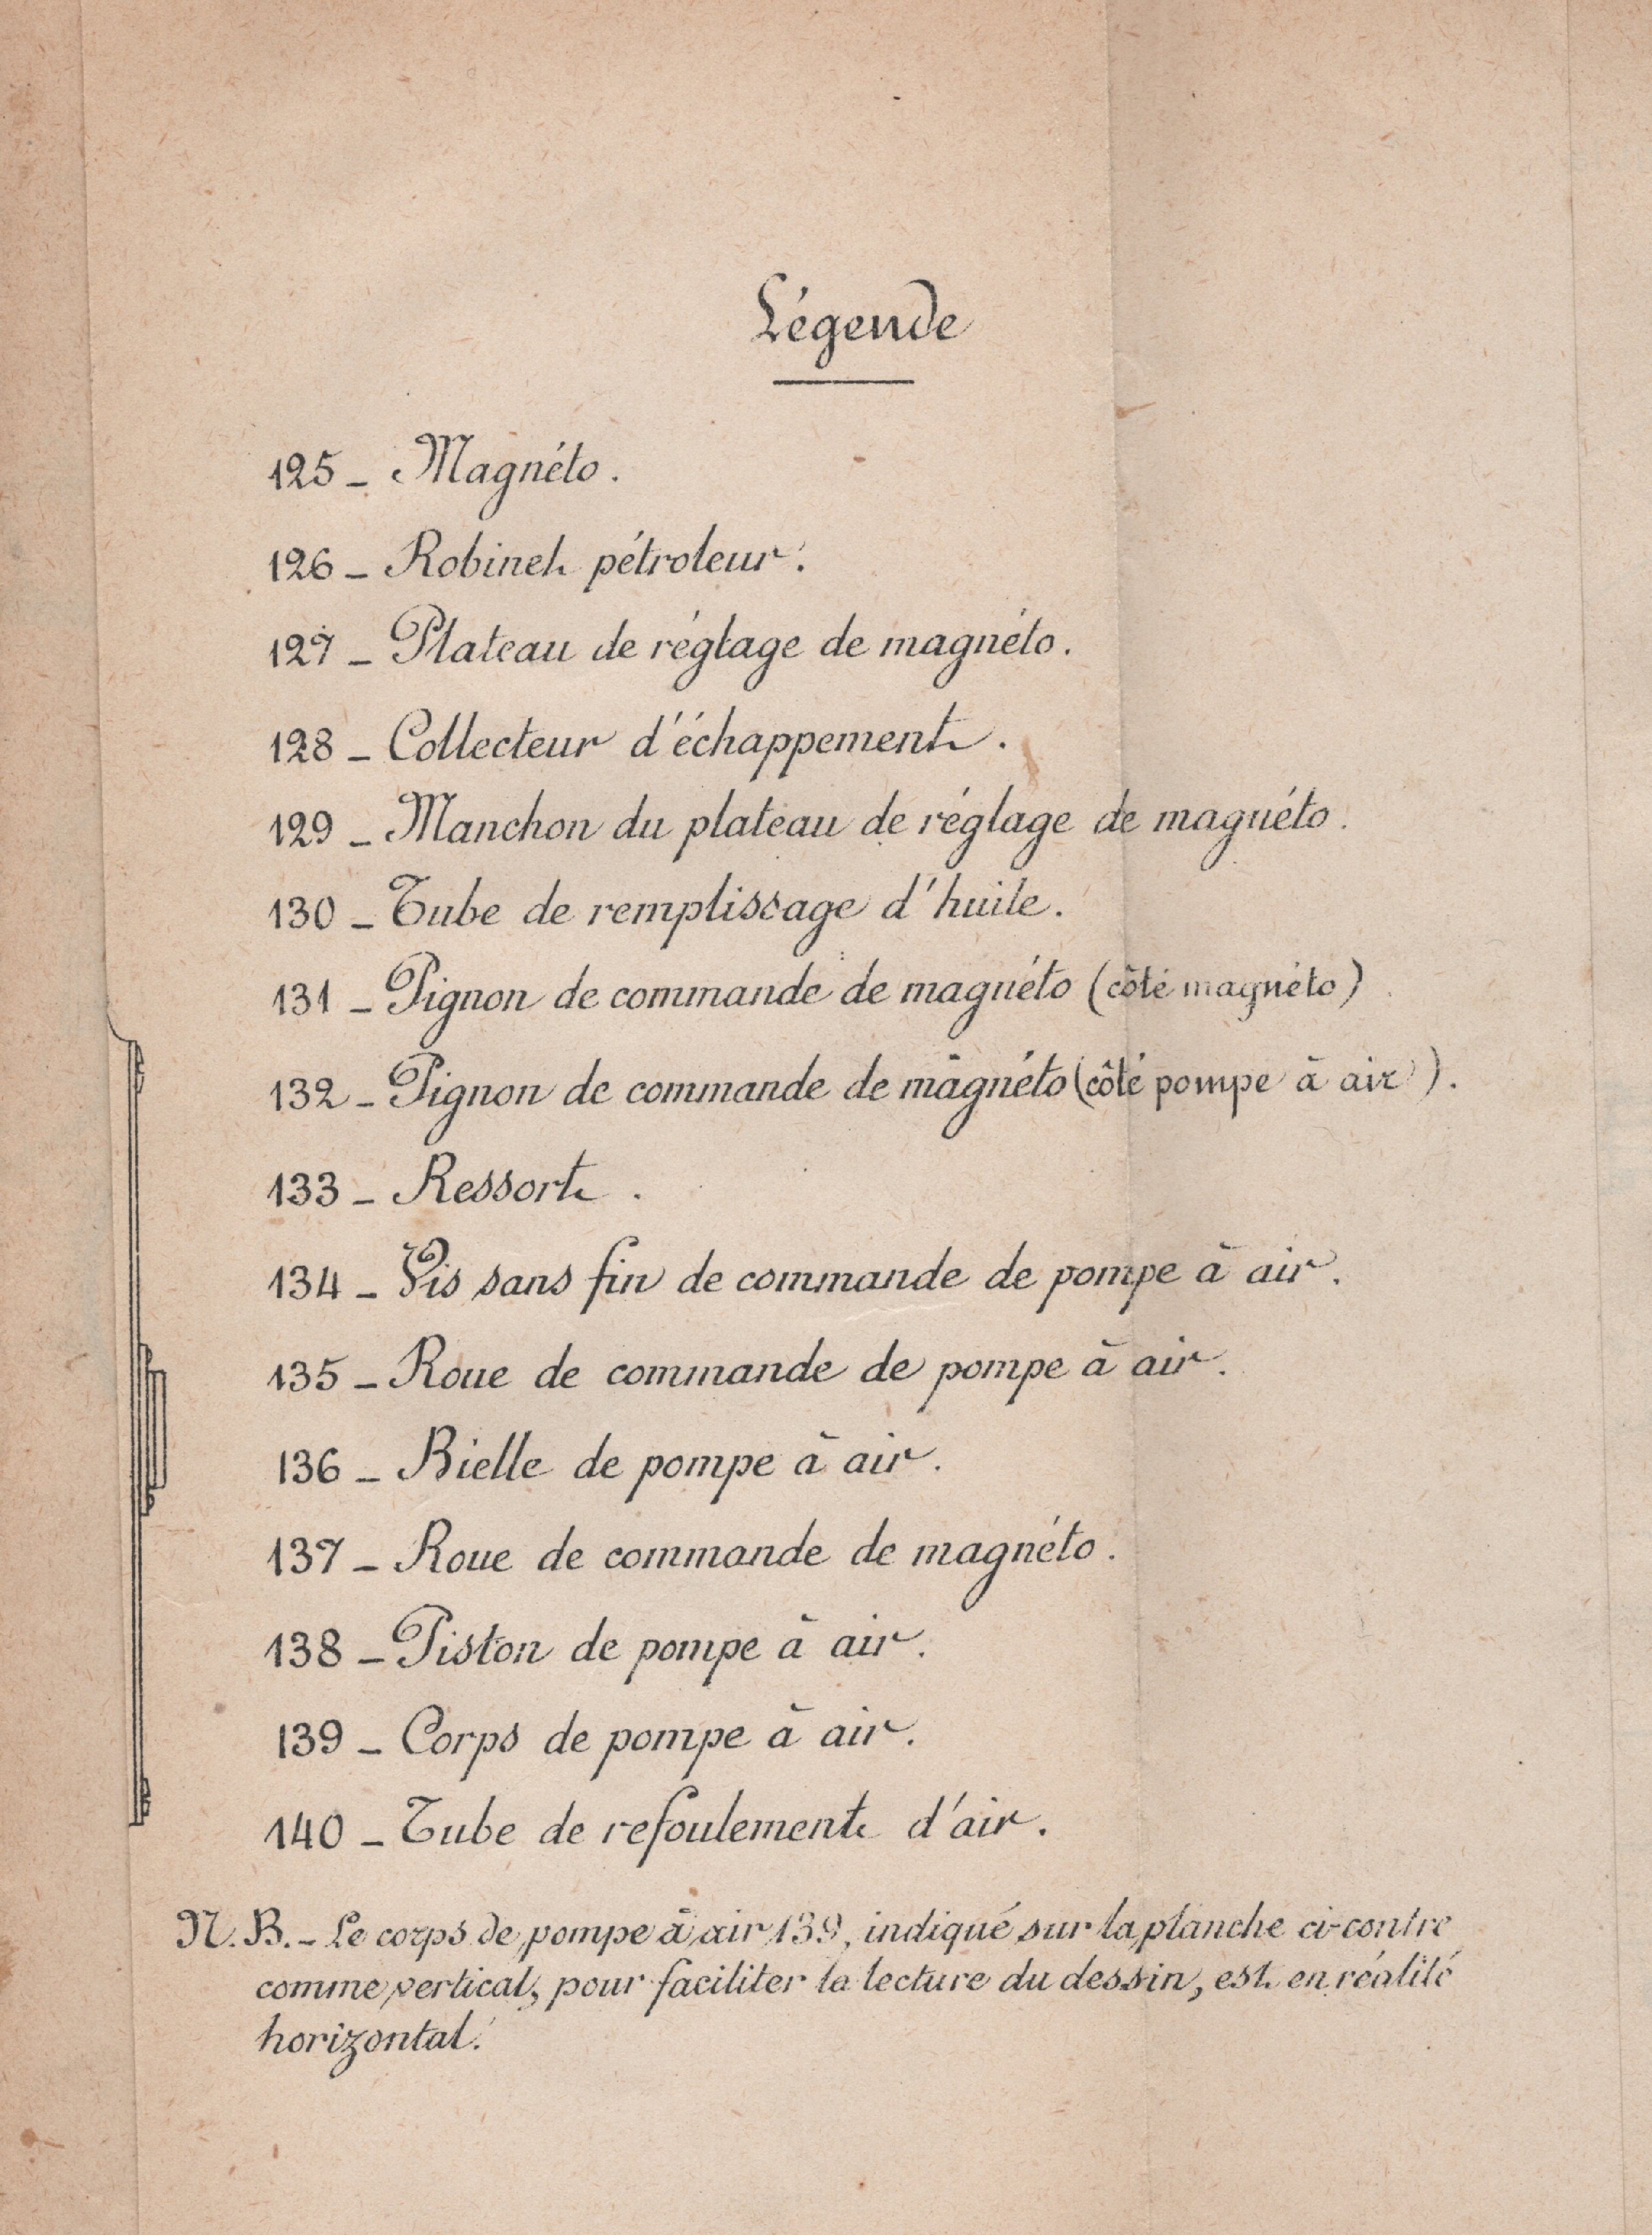 Légende
125 - Magnéto.
126 - Robinet pétroleur.
127 - Plateau de réglage de magnéto.
128 - Collecteur d'échappement.
129 - Manchon du plateau de réglage de magnéto.
130 - Tube de remplissage d'huile.
131 - Pignon de commande de magnéto (côté magnéto)
132 - Pignon de commande de magnéto (côté pompe à air).
133 - Ressort.
134 - Vis sans fin de commande de pompe à air.
135 - Roue de commande de pompe à air.
136 - Bielle de pompe à air.
137 - Roue de commande de magnéto.
138 - Piston de pompe à air.
139 - Corps de pompe à air.
140 - Tube de refoulement d'air.
N.B. - Le corps de pompe à air 139, indiqué sur la planche ci-contre
comme vertical, pour faciliter la lecture du dessin, est en réalité
horizontal.